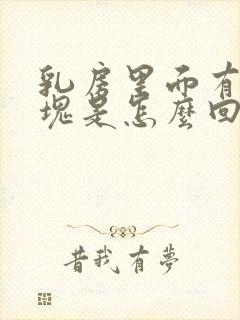 乳房里面有
块是怎麼回
昔我有夢